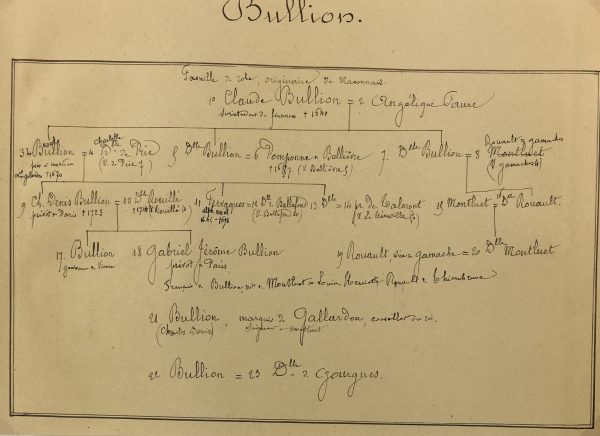 Bullion.
Famille de robe, originaire du Maconnais.
1º Claude Bullion = 2 Angélique Faure
surintendant des finances + 1640
3 Noël Bullion = 4 Charlotte de Prie 5 Dlle Bullion = 6 Pomponne de Bellièvre 7. Dlle Bullion = 8 Rouault de gamaches
+ 1670 (V. de Prie 7) (V. Bellièvre 5) Montluet
(V. gamaches 4)
9 Ch. Denis Bullion = 10 Dlle Rouillé 11 Fervaques = 12 Dlle de Bellefond 13 Dlle = 14 pr. de Talmont 15 Montluet = 16 Dlle Rouault.
prévôt de Paris + 1723 (V. Bellefond 10) (V. La Trémoille 5)
17. Bullion 18 Gabriel Jérôme Bullion 19 Rouault, sire de gamache = 20 Dlle Montluet
prévôt de Paris
François de Bullion sire de Montluet = Louise Henriette Rouault de Thiembrune
21 Bullion, marquis de Gallardon, conseiller du roi.
(Charles Denis) seigneur de Montluet
22 Bullion = 23 Dlle de Gourgues.